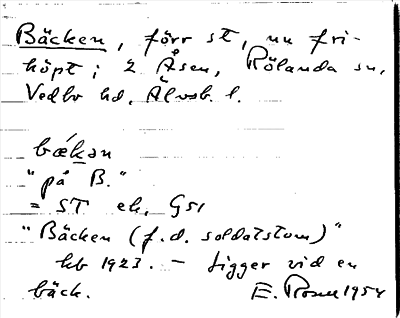 Bäcken, förr st, nu fri-
köpt; 2 Åsen, Rölanda sn,
Vedbo hd, Älvsb. l.
bækən
"på B."
= ST ek. G51
"Bäcken (f.d. soldatstom)"
kb 1923. – Ligger vid en
bäck. E. Rosell 1954